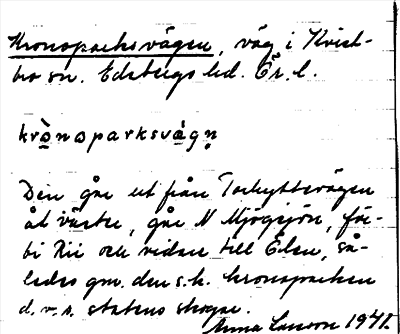 Kronoparksvägen, väg i Kvist-
bro sn. Edsbergs hd. Ör. l.
krònoparksvä̀gn̥
Den går ut från Torhyttevägen
åt väster, går N Mjögsjön, för-
bi Xii och vidare till Ölsen, så-
ledes gm. den s.k. kronoparken
d.v.s. statens skogar.
Anna Larsson 1941.